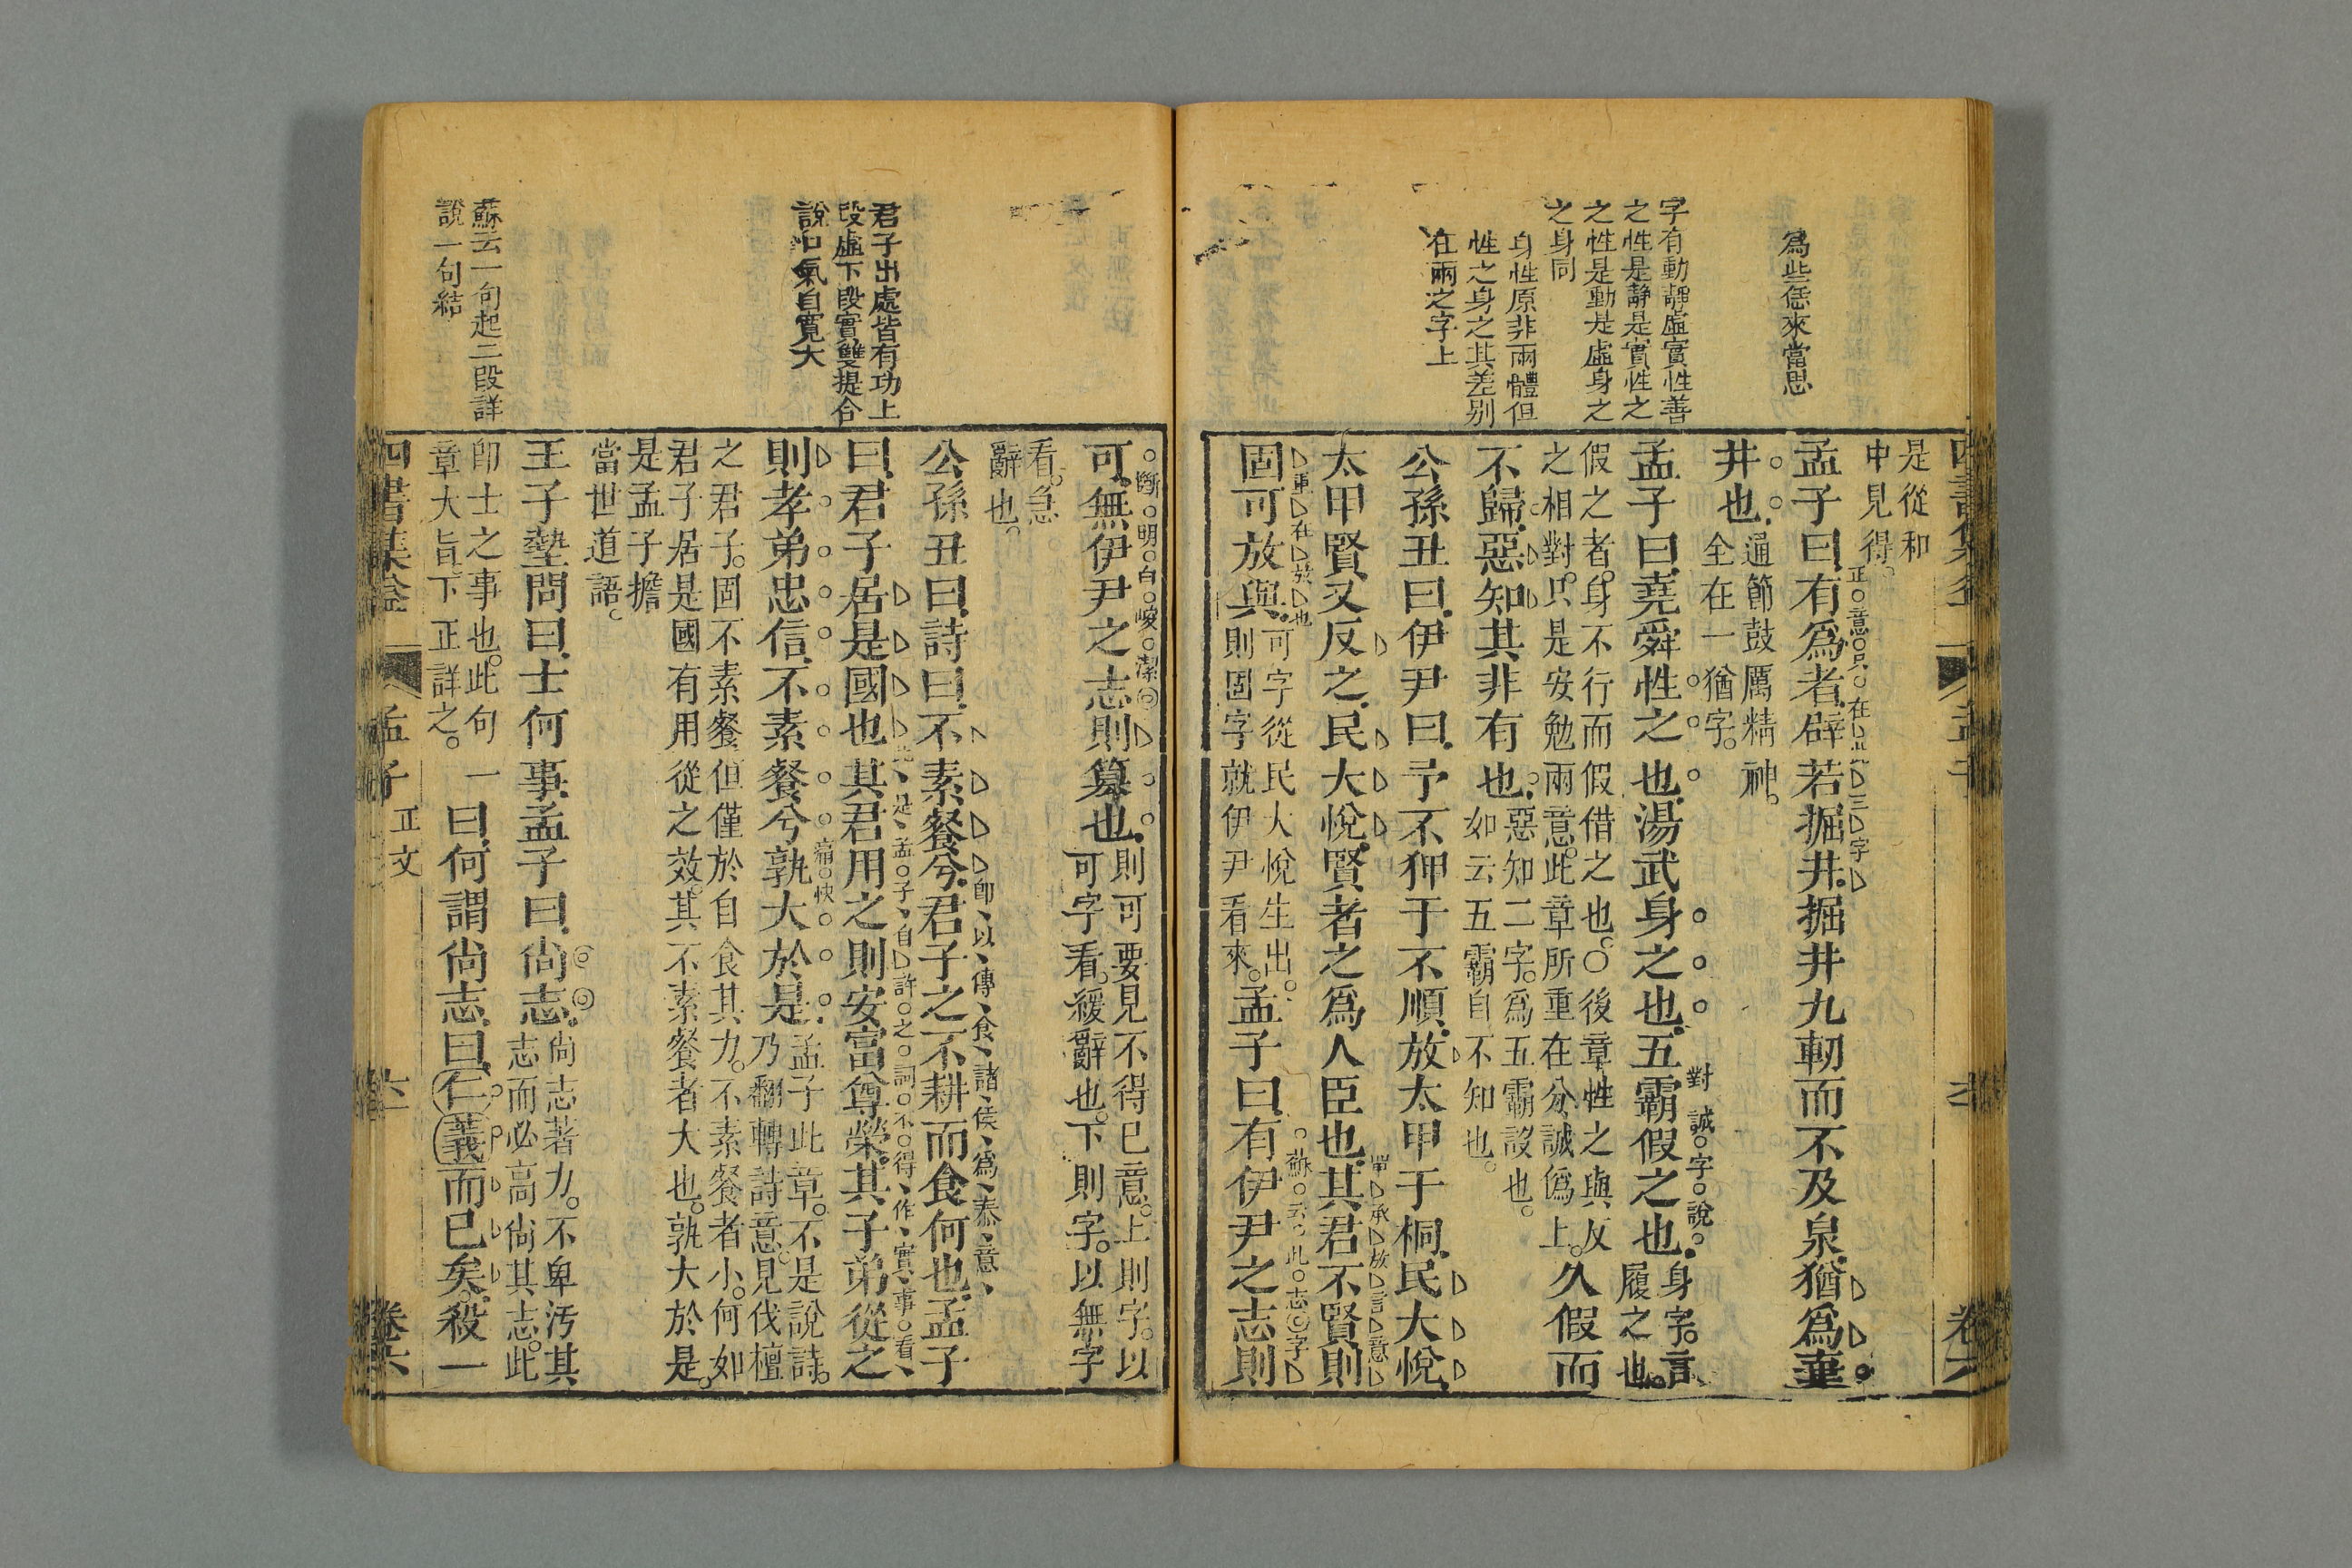 為些恁來當思
字有動靜虛實性善
之性是靜是實性之
之性是動是虛身之
之身同
身性原非兩體但
性之身之其差別
在兩之字上
是從和
中見得。
孟子曰有為者辟若掘井掘井九軔而不及泉猶為棄
井也通節鼓厲精神。
全在一猶字。
孟子曰堯舜性之也湯武身之也五霸假之也身字。言
履之也。
對誠字說
假之者。身不行而假借之也。○後章性之與反
之相對。只是安勉兩意。此章所重在分誠偽上。久假而
不歸惡知其非有也惡知二字。為五霸設也。
如云五霸自不知也。
公孫丑曰伊尹曰予不狎于不順放太甲于桐民大悅
太甲賢又反之民大悅賢者之為人臣也其君不賢則
固可放與可字從民大悅生出。
則固字就伊尹看來。孟子曰有伊尹之志則
蘇云此志字
君子出處皆有功上
段虛下段實雙提合
說口氣自寬大
蘇云一句起二段詳
說一句結
斷明白峻潔
可無伊尹之志則篡也則可要見不得已意。上則字。以
可字看。緩辭也。下則字。以無字
看。急
辭也。
公孫丑曰詩曰不素餐兮君子之不耕而食何也孟子
即以傳食諸侯為泰意
曰君子居是國也其君用之則安富尊榮其子弟從之
則孝弟忠信不素餐兮孰大於是孟子此章。不是說詩。
乃翻轉詩意。見伐檀
痛快
之君子。固不素餐。但僅於自食其力。不素餐者小。何如
君子居是國有用從之效。其不素餐者大也。孰大於是。
是孟子擔
當世道語。
王子墊問曰士何事孟子曰尚志尚志著力。不卑汚其
志而必高尚其志。此
即士之事也。此句一
章大旨。下正詳之。曰何謂尚志曰仁義而已矣殺一
孟子
正文
卷六